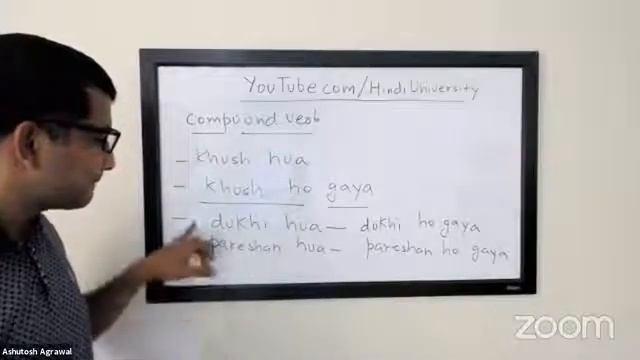 YouTube.com/HindiUniversity
compound verb
- khush hua
- khush ho gaya
- dukhi hua - dukhi ho gaya
pareshan hua - pareshan ho gaya
zoom
Ashutosh Agrawal